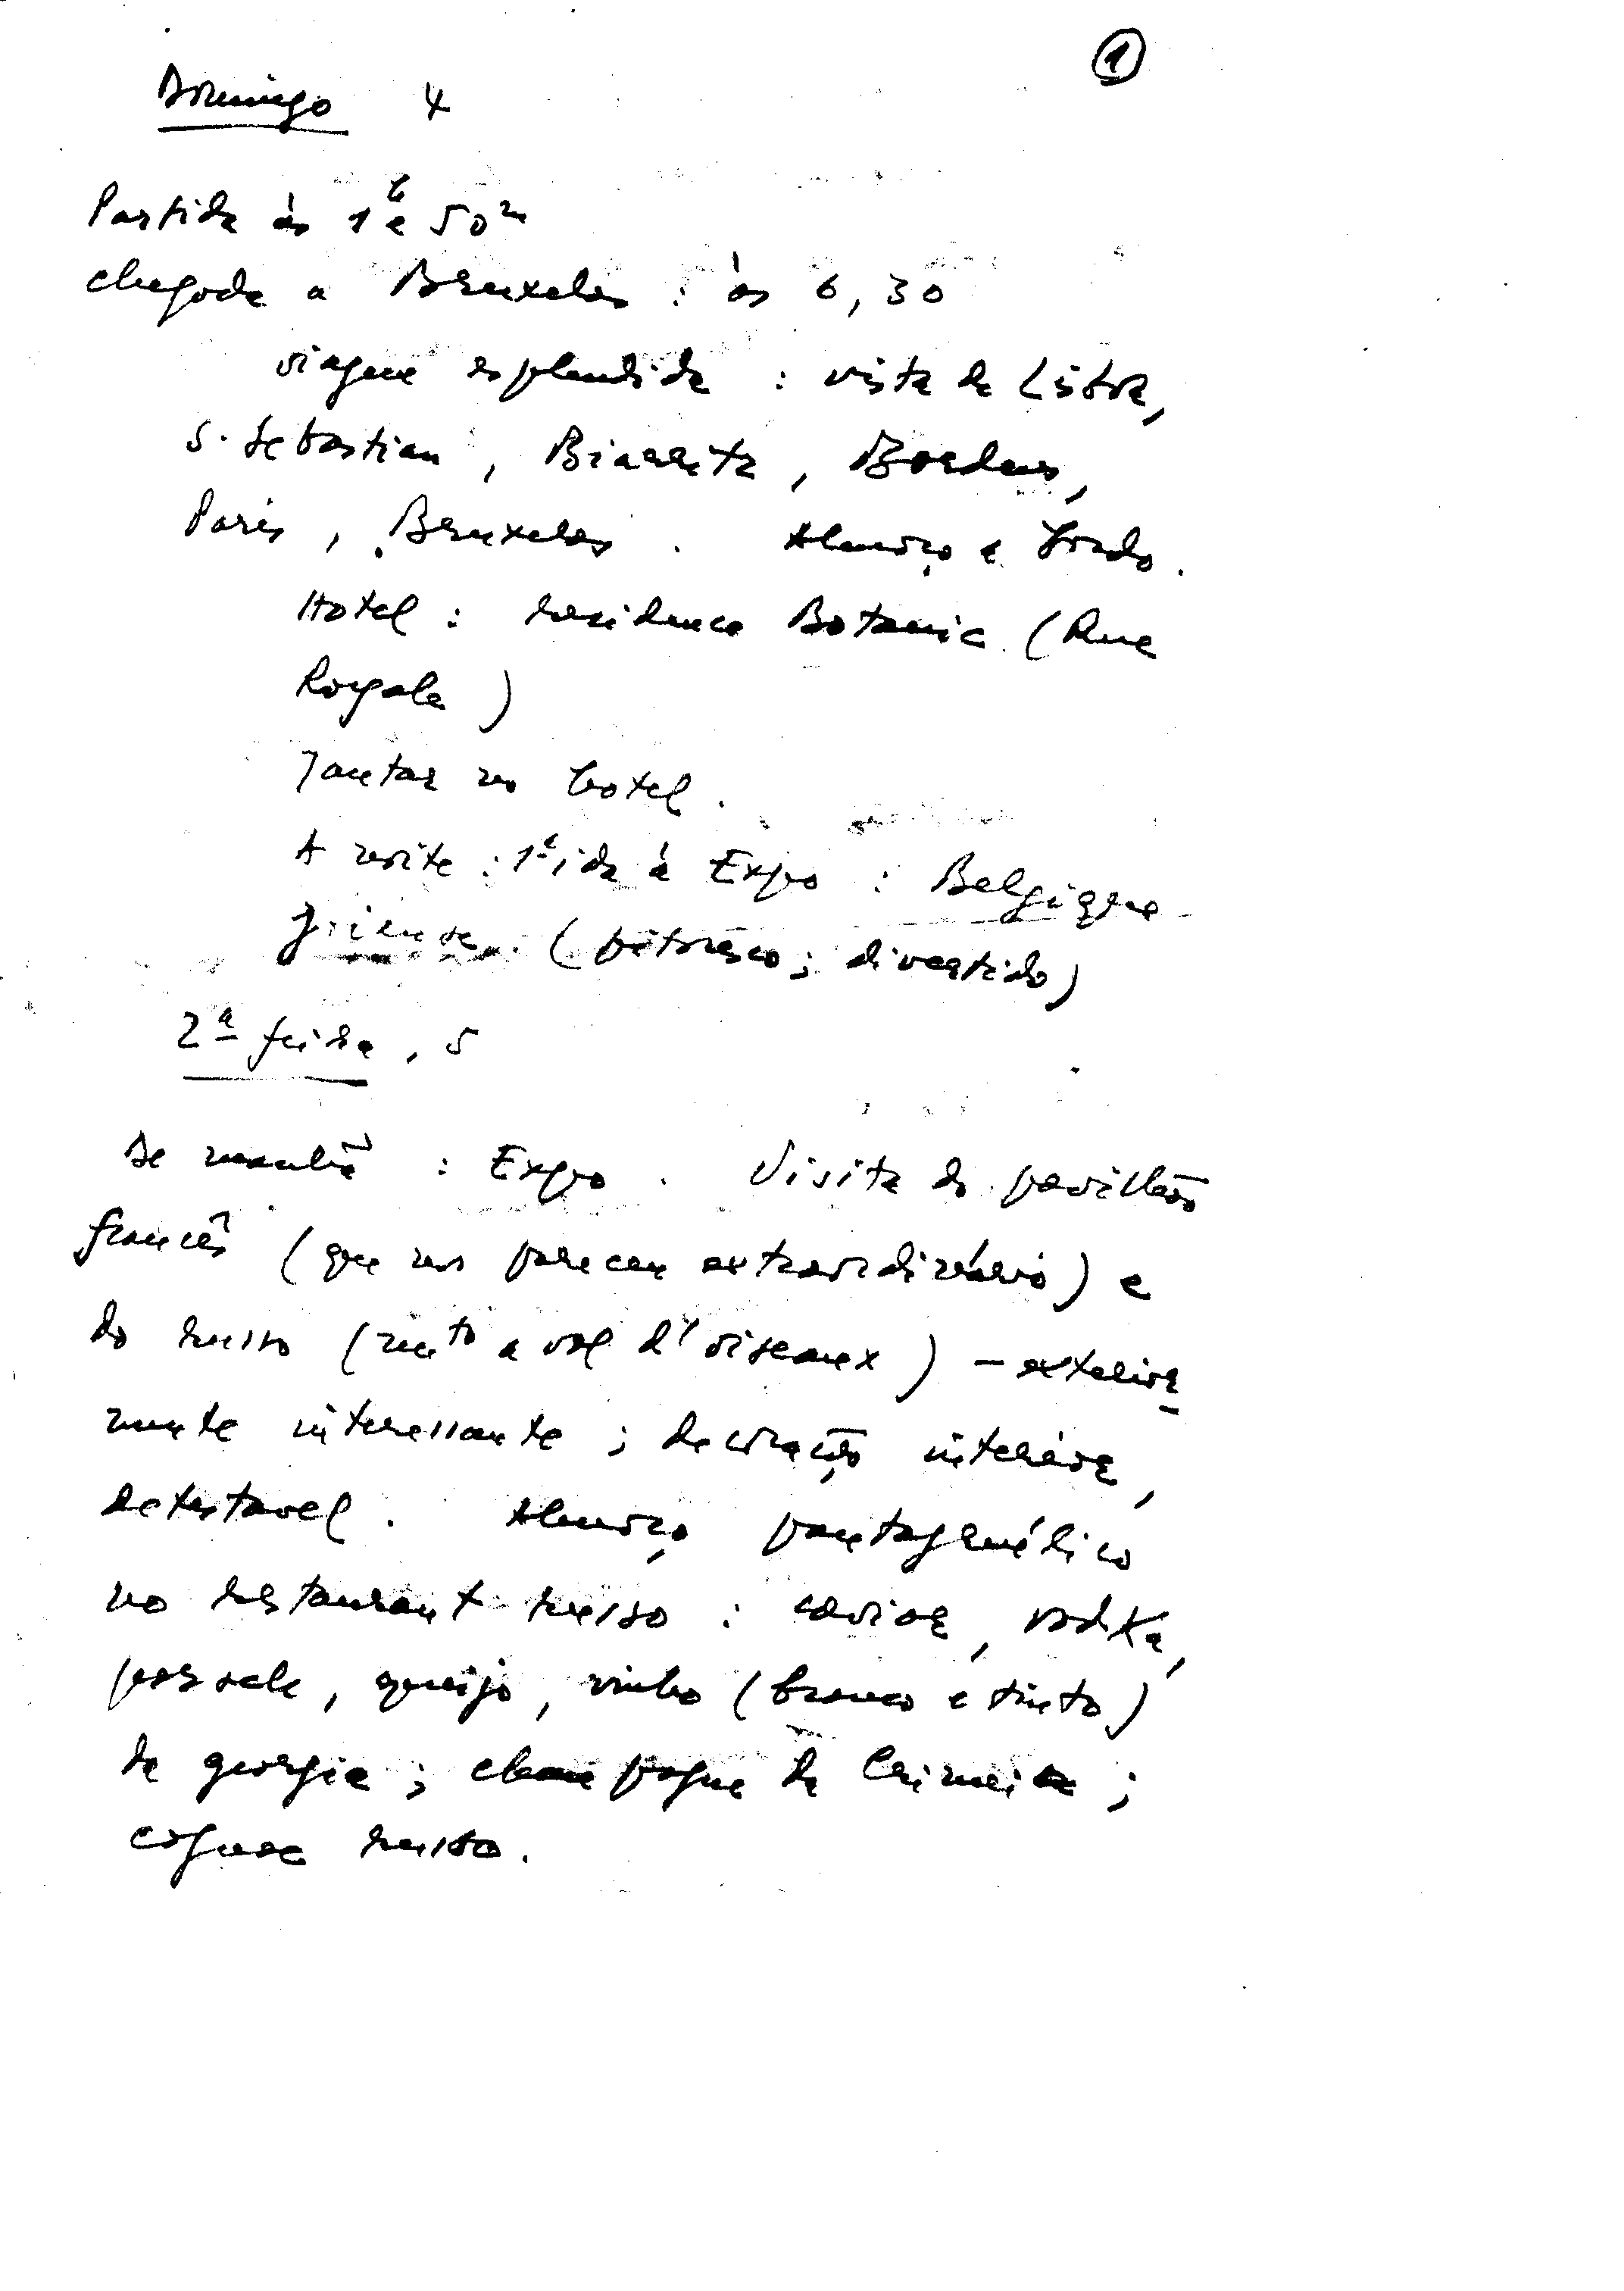 1
Domingo 4
Partida às 1h e 50m
chegada a Bruxelas : às 6,30
viagem esplendida : vista de Lisboa,
S. Sebastian, Biarritz, Bordeus,
Paris, Bruxelas. Almoço a bordo.
Hotel : residence Botanic (Rue
Royale)
Jantar no hotel.
A noite : 1ª ida à Expo : Belgique
joieuse (pitoresco; divertido)
2ª feira, 5
De manhã : Expo. Visita do pavilhão
francês (que nos pareceu extraordinário) e
do russo (mto a vol d'oiseaux) – exterior
mente interessante ; decoração interior,
detestavel. Almoço pantagruélico
no restaurant russo : caviar, vodka,
queijo, vinho (branco e tinto)
da georgia ; champagne da Crimeia ;
cognac russo.